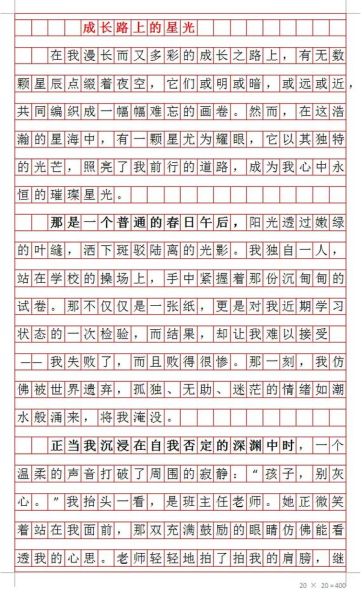 成长路上的星光
在我漫长而又多彩的成长之路上，有无数
颗星辰点缀着夜空，它们或明或暗，或远或近，
共同编织成一幅幅难忘的画卷。然而，在这浩
瀚的星海中，有一颗星尤为耀眼，它以其独特
的光芒，照亮了我前行的道路，成为我心中永
恒的璀璨星光。
那是一个普通的春日午后，阳光透过嫩绿
的叶缝，洒下斑驳陆离的光影。我独自一人，
站在学校的操场上，手中紧握着那份沉甸甸的
试卷。那不仅仅是一张纸，更是对我近期学习
状态的一次检验，而结果，却让我难以接受
——我失败了，而且败得很惨。那一刻，我仿
佛被世界遗弃，孤独、无助、迷茫的情绪如潮
水般涌来，将我淹没。
正当我沉浸在自我否定的深渊中时，一个
温柔的声音打破了周围的寂静：“孩子，别灰
心。”我抬头一看，是班主任老师。她正微笑
着站在我面前，那双充满鼓励的眼睛仿佛能看
透我的心思。老师轻轻地拍了拍我的肩膀，继
20 × 20=400